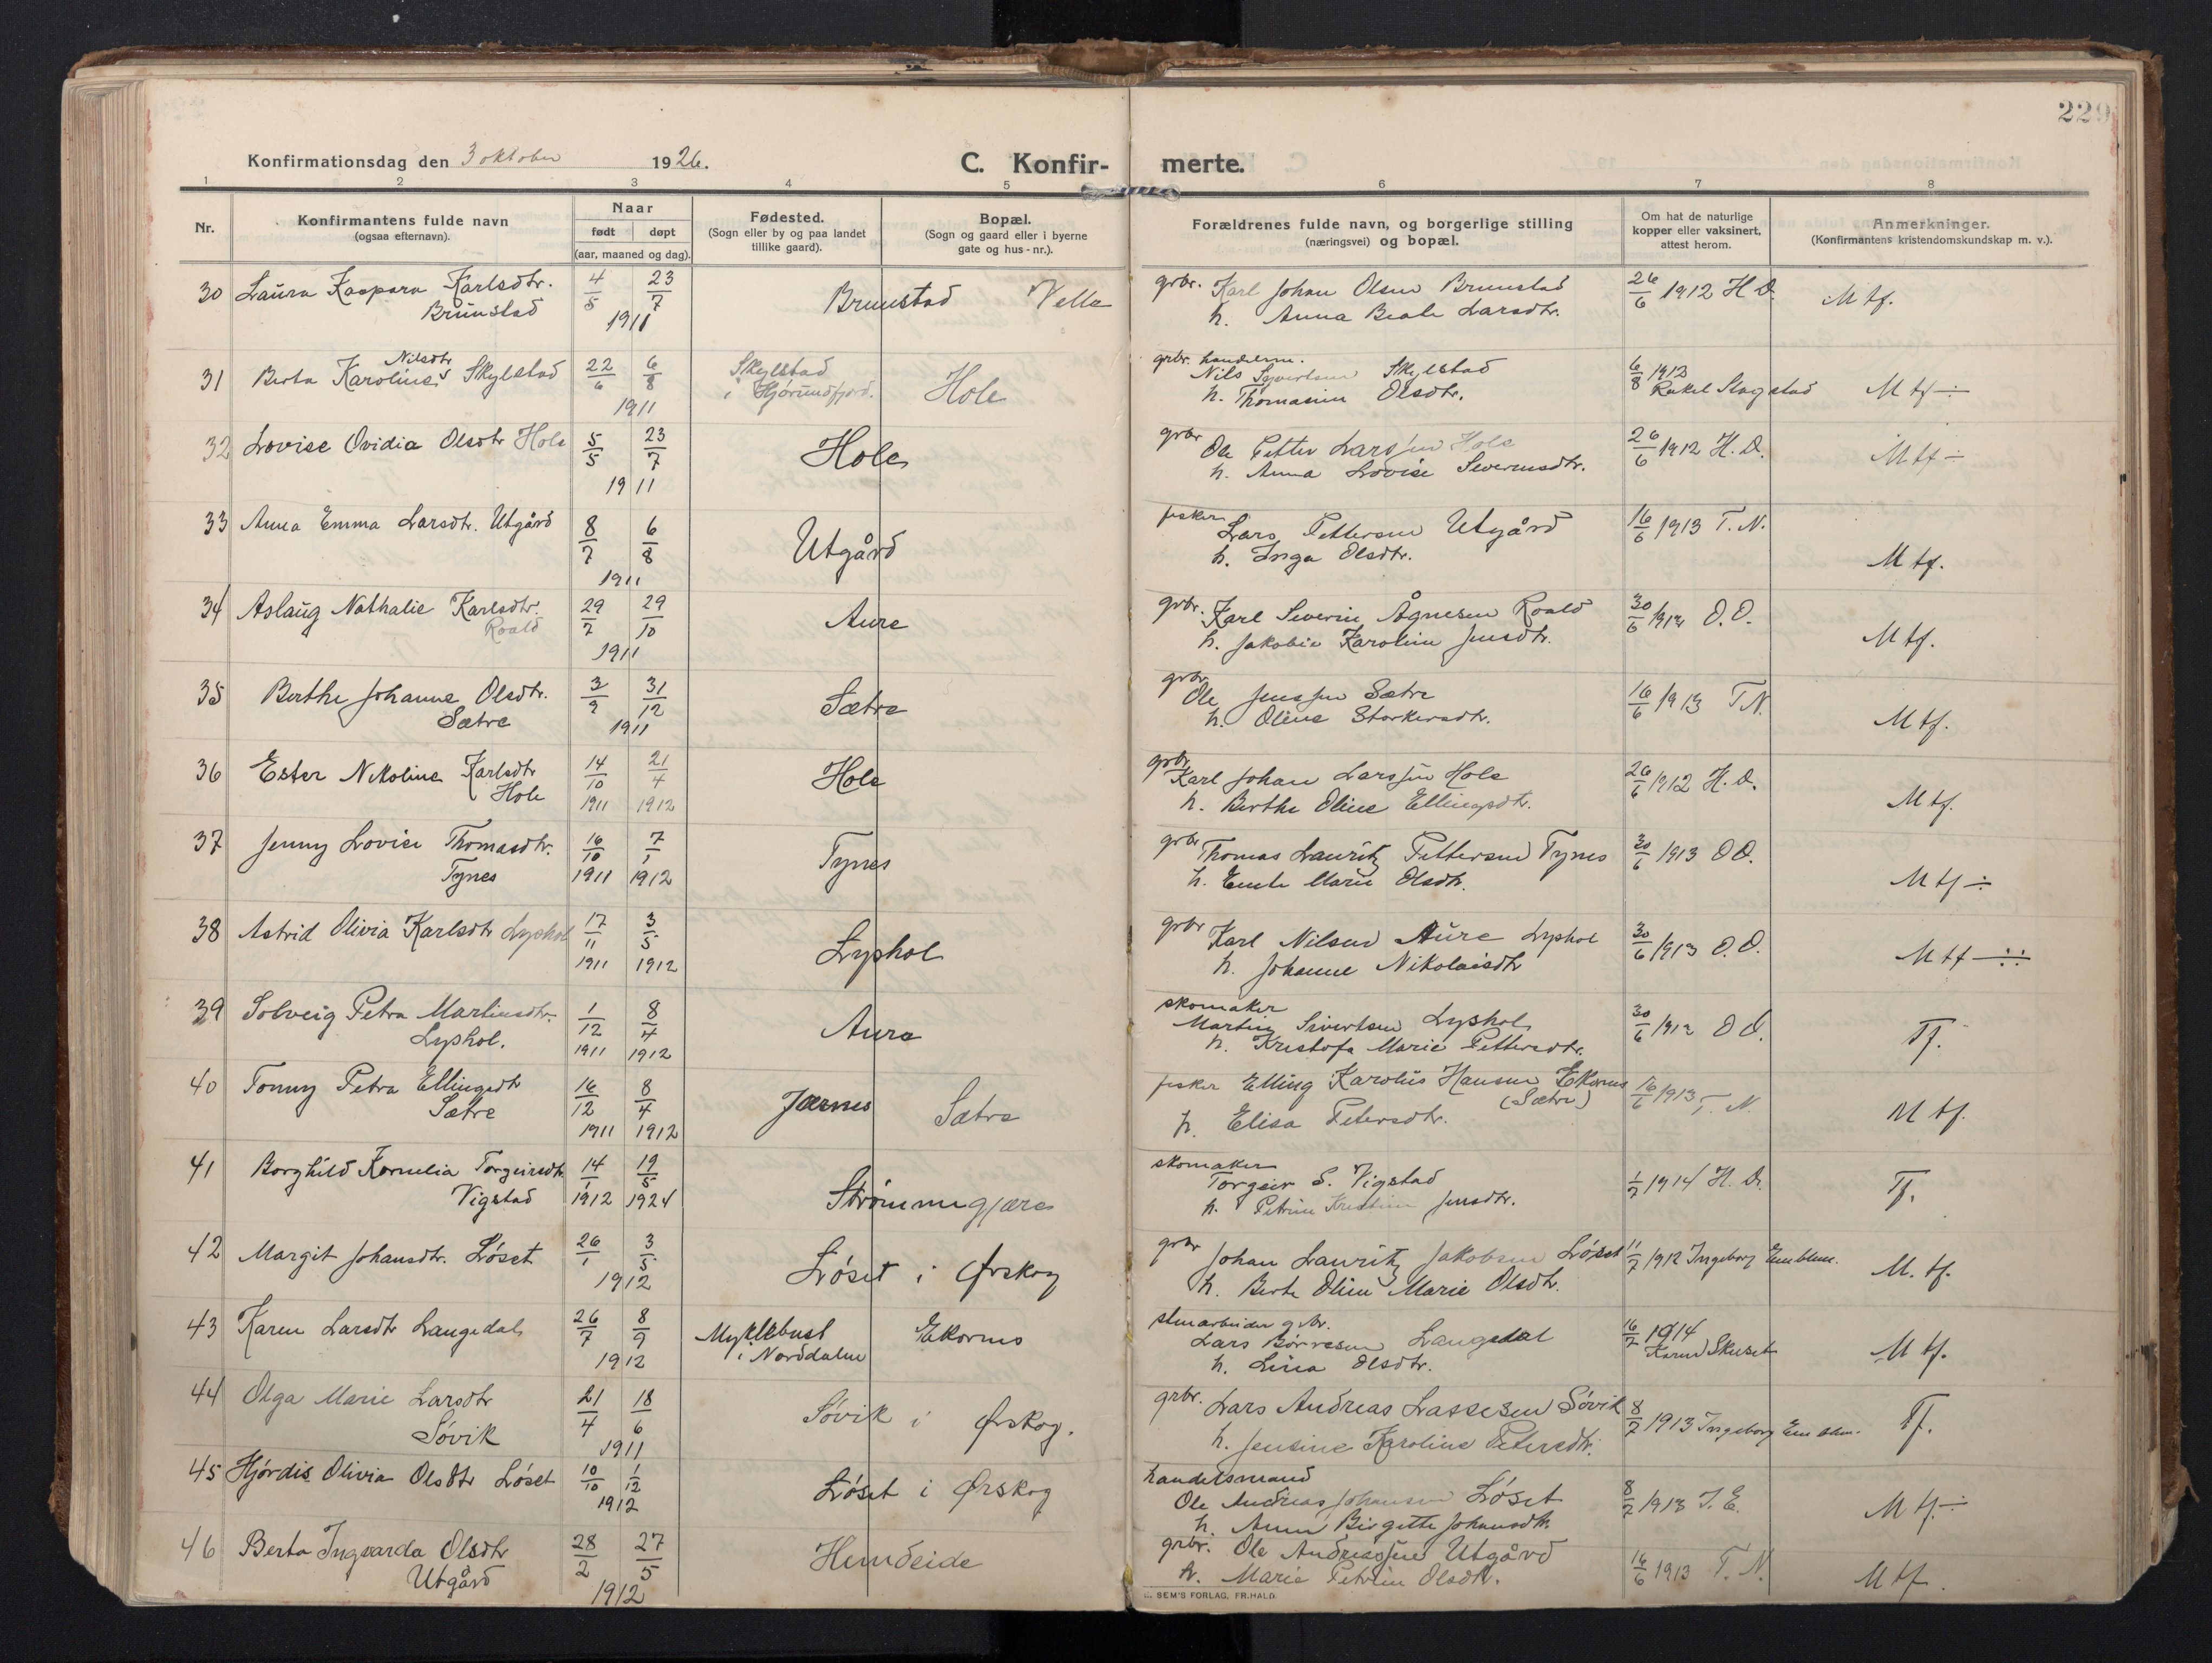 229
Konfirmationsdag den 3 oktober 1926.
C. Konfir- merte.
1 2 3 4 5 6 7 8
Nr.
Konfirmantens fulde navn
(ogsaa efternavn).
Naar
født døpt
(aar, maaned og dag).
Fødested.
(Sogn eller by og paa landet
tillike gaard).
Bopæl.
(Sogn og gaard eller i byerne
gate og hus-nr.).
Forældrenes fulde navn, og borgerlige stilling
(næringsvei) og bopæl.
Om hat de naturlige
kopper eller vaksinert,
attest herom.
Anmerkninger.
(Konfirmantens kristendomskundskap m. v.).
30 Laura Kaspara Karlsdtr. 4/5 23/7 Brunstad Velle grbr. Karl Johan Olsen Brunstad 26/6 1912 H.D. Mtf.
Brunstad 1911 h. Anna Beate Larsdtr.
31 Berta Karoline Nilsdtr Skylstad 22/6 6/8 Skylstad Hole grbr. handelsm. 6/8 1913 Mtf ÷
1911 i Hjørundfjord. Nils Syvertsen Skylstad Rakel Slogstad
h. Thomasine Olsdtr.
32 Lovise Ovidia Olsdtr Hole 5/5 23/7 Hole grbr Ole Petter Larssen Hole 26/6 1912 H.D. Mtf ÷
1911 h. Anna Lovise Severinsdtr.
33 Anna Emma Larsdtr. Utgård 8/7 6/8 Utgård fisker Lars Pettersen Utgård 16/6 1913 T.N.
1911 h. Inga Olsdtr. Mtf.
34 Aslaug Nathalie Karlsdtr. 29/7 29/10 Aure grbr. Karl Severin Ågnesen Roald 30/6 1913 O.O.
Roald 1911 h. Jakobie Karoline Jensdtr. Mtf.
35 Berthe Johanne Olsdtr. 3/9 31/12 Sætre grbr Ole Jenssen Sætre 16/6 1913 T.N.
Sætre 1911 h. Oline Storkersdtr. Mtf.
36 Ester Nikoline Karlsdtr 14/10 21/4 Hole grbr Karl Johan Larssen Hole 26/6 1912 H.D.
Hole 1911 1912 h. Berthe Oline Ellingsdtr. Mtf.
37 Jenny Lovise Thomasdtr. 16/10 7/1 Tynes grbr Thomas Lauritz Pettersen Tynes 30/6 1913 O.O.
Tynes 1911 1912 h. Emte Marie Olsdtr. Mtf ÷
38 Astrid Olivia Karlsdtr Lyshol 17/11 3/5 Lyshol grbr Karl Nilsen Aure Lyshol 30/6 1913 O.O. Mtf ÷:
1911 1912 h. Johanne Nikolaisdtr
39 Solveig Petra Martinsdtr. 1/12 8/4 Aure skomaker 30/6 1913 O.O. Tf.
Lyshol. 1911 1912 Martin Sivertsen Lyshol
h. Kristofa Marie Pettersdtr.
40 Tonny Petra Ellingsdtr 16/12 8/4 Jærnes Sætre fisker Elling Karolius Hansen Ekornes 16/6 1913 T.N. Mtf.
Sætre 1911 1912 (Sætre)
h. Elisa Petersdtr.
41 Borghild Kornelia Torgeirsdtr. 14/1 19/5 Strømmegjære skomaker 1/7 1914 H.D. Tf.
Vigstad 1912 1924 Torgeir S. Vigstad
h. Petrine Kristine Jensdtr.
42 Margit Johansdtr. Løset 26/1 3/5 Løset i Ørskog grbr Johan Lauritz Jakobsen Løset 11/7 1912 Ingeborg Emblem. M.tf.
1912 h. Berte Oline Marie Olsdtr.
43 Karen Larsdtr Langedal 26/7 8/9 Myklebust Ekornes stenarbeider grbr. 16/7 1914 Mtf.
1912 i Norddalen Lars Børresen Langedal Karen Skuset
h. Lina Olsdtr.
44 Olga Marie Larsdtr 21/4 18/6 Søvik i Ørskog. grbr. Lars Andreas Lassesen Søvik 8/7 1913 Ingeborg Emblem. Tf.
Søvik 1911 h. Jensine Karoline Petersdtr.
45 Hjørdis Olivia Olsdtr Løset 10/10 1/12 Løset i Ørskog handelsmand 8/7 1913 I.E. Mtf ÷
1912 Ole Andreas Johansen Løset
h. Anne Birgitte Johansdtr.
46 Berta Ingvarda Olsdtr 28/2 27/5 Hemdeide grbr. Ole Andreassen Utgård 16/6 1913 T.N. Mtf.
Utgård 1912 h. Marie Petrine Olsdtr.
SEM'S FORLAG, FR.HALD